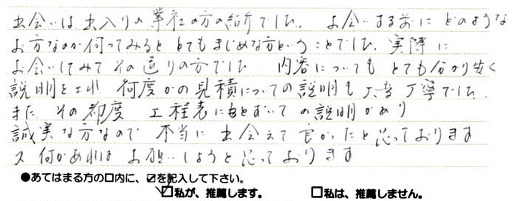 出会いは出入りの業社の方の紹介でした。お会いする前にどのような
お方なのか伺ってみるととてもまじめな方ということでした。実際に
お会いしてみてその通りの方でした 内容についてもとても分かり安く
説明をされ 何度かの見積についての説明も 丁寧でした。
また その都度 工程表にもとずいての説明があり
誠実な方なので 本当に出会えて良かったと思っております
又何かあればお願いしようと思っております
●あてはまる方の口内に、☑を記入して下さい。
☑私が、推薦します。 □私は、推薦しません。